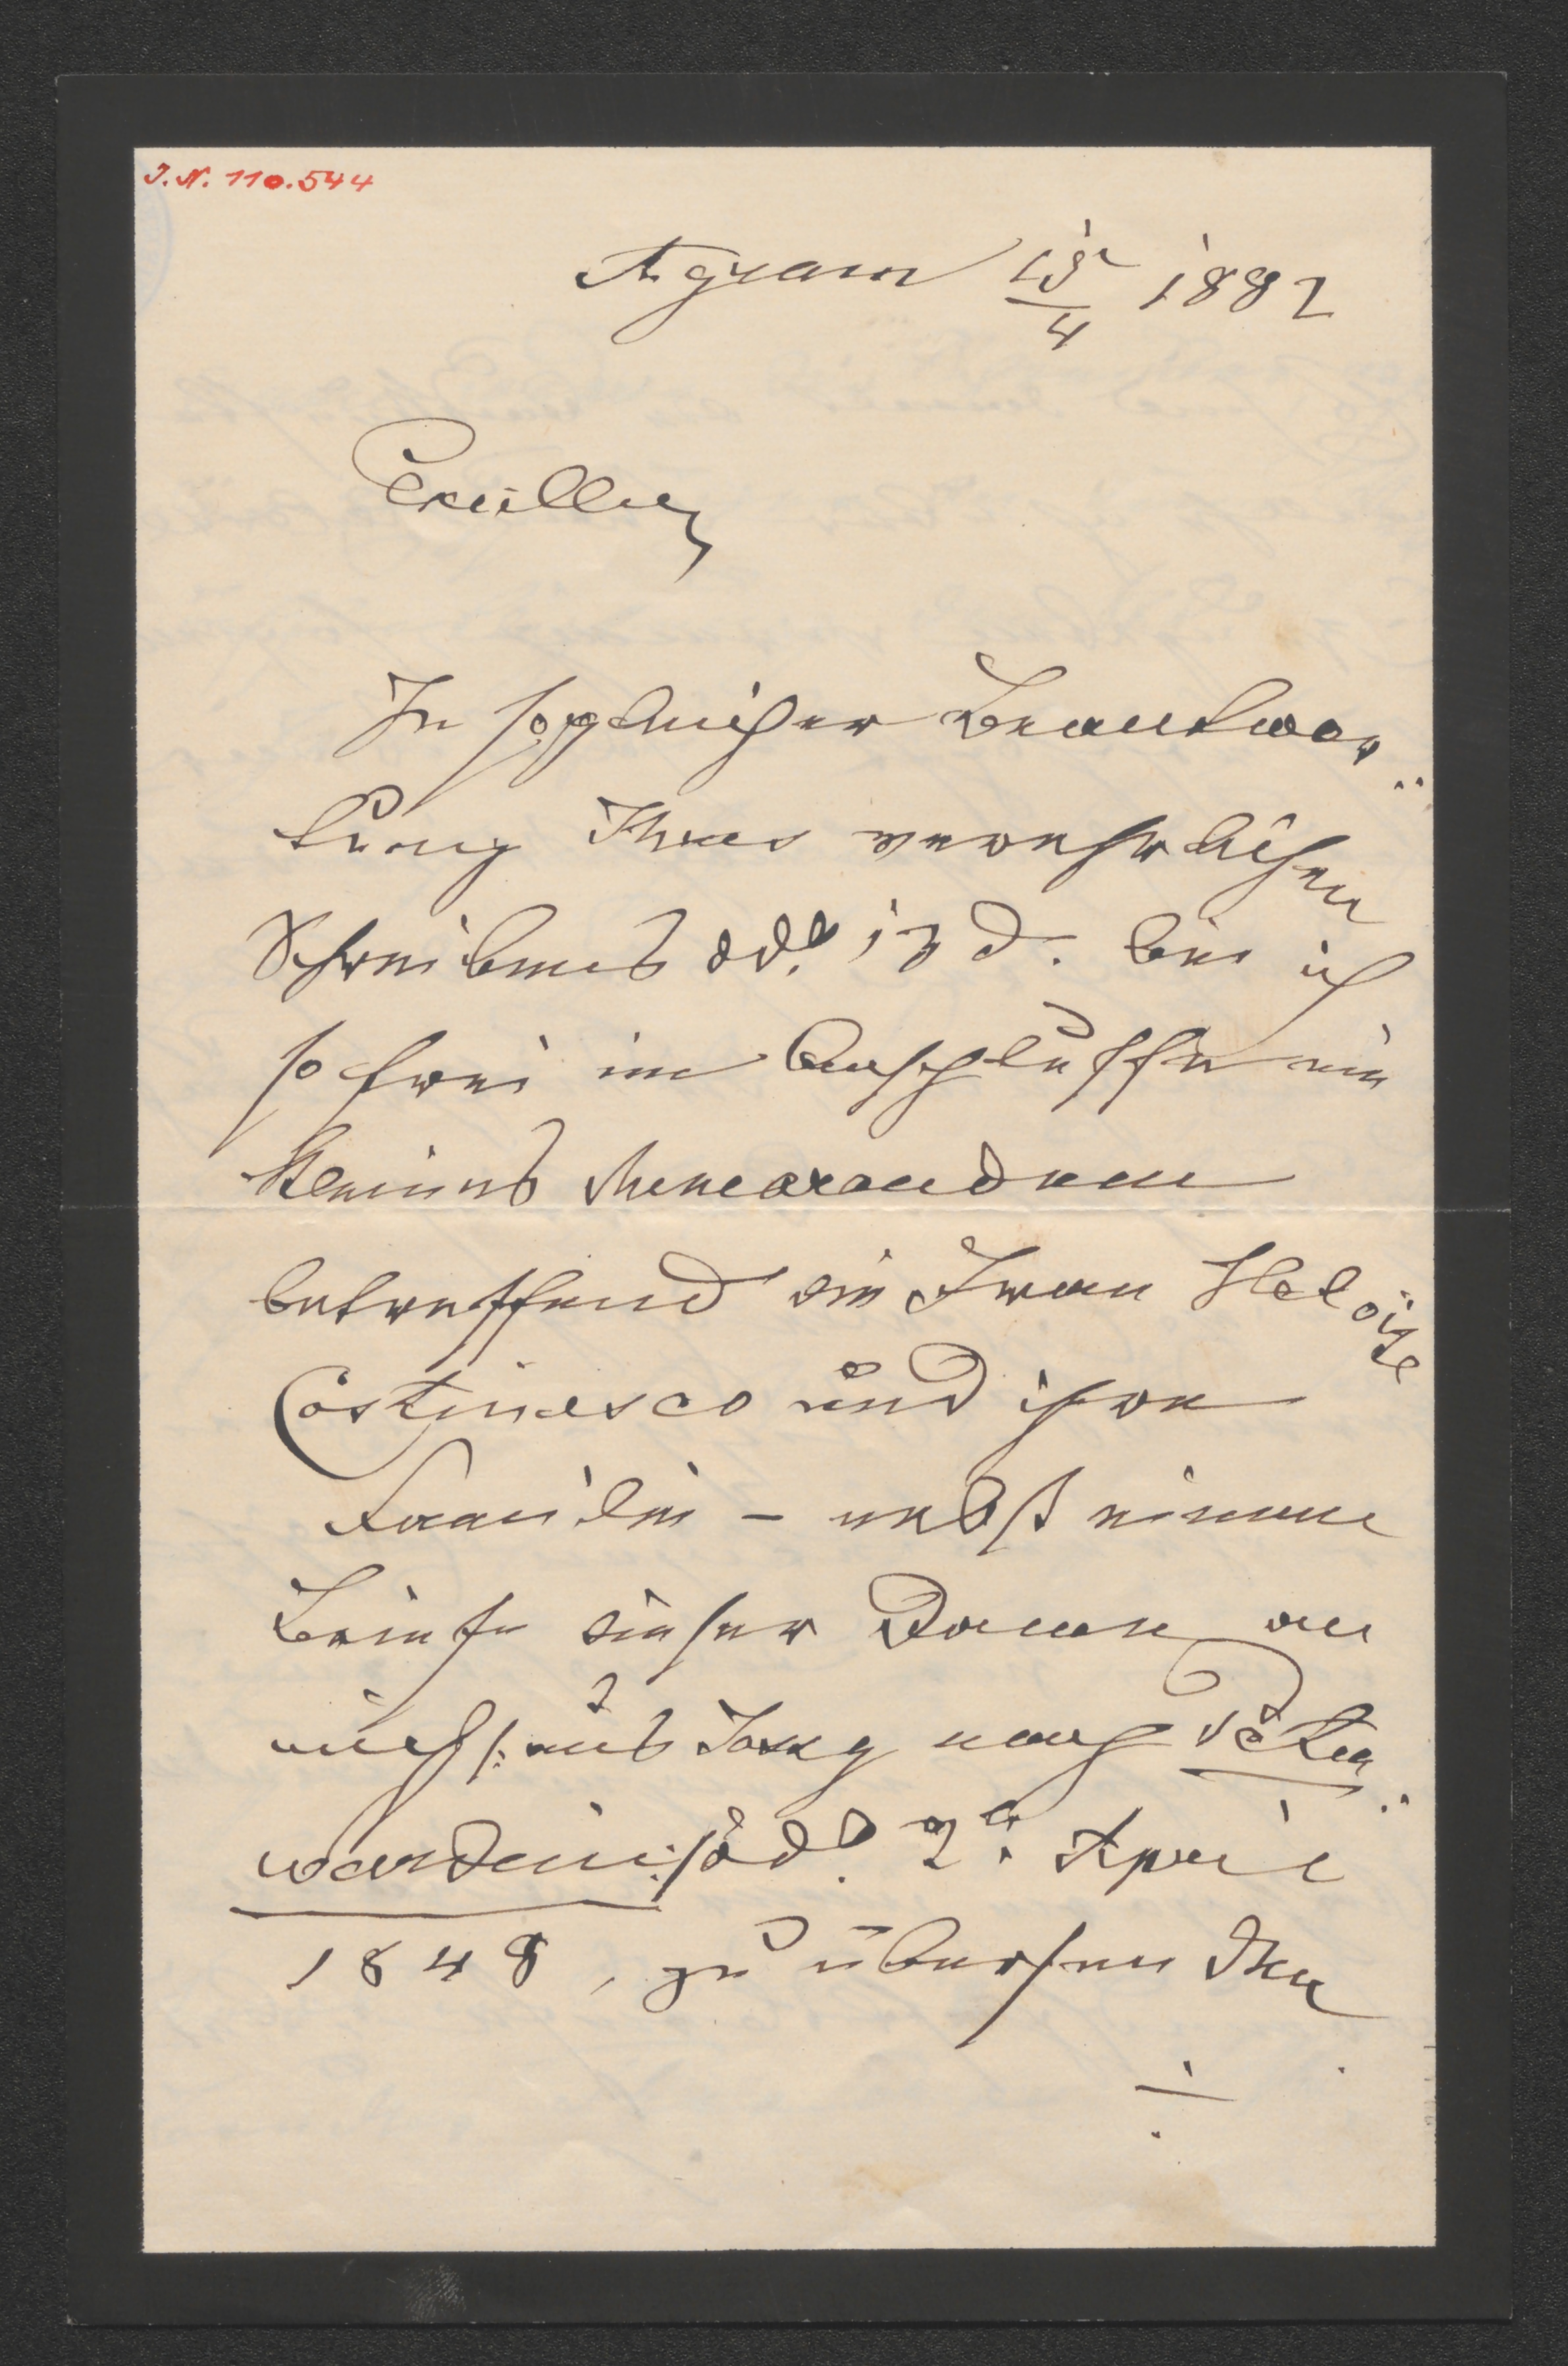 I.N. 110.544
Agram 15/4 1882
Excellenz
In sogleicher Beantwor¨
tung Ihres verehrlichen
Schreibens ddº 13 d. bin ich
so frei im Anschlusse ein
kleines Memorandum
betreffend die Frau Heloïse
Costinesco und ihre
Familie – nebst einem
Briefe dieser Dame an
mich /: aus Jassy nach Peter¨
wardein :/ ddº 2n April
1848, zu übersenden